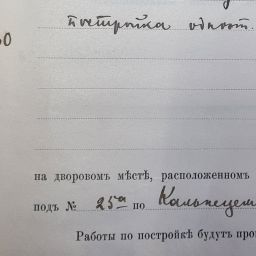 постройка одноэт.
0
на дворовомъ мѣстѣ, расположенномъ
подъ № 25а по
Работы по постройкѣ будутъ про